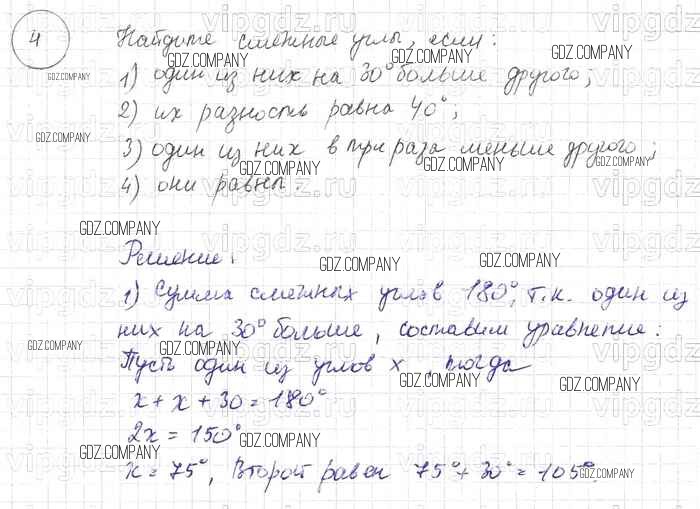 4 Найдите смежные углы, если:
1) один из них на 30° больше другого;
2) их разность равна 40°;
3) один из них в три раза меньше другого;
4) они равны.
Решение:
1) Сумма смежных углов 180°, т.к. один из
них на 30° больше, составим уравнение:
Пусть один из углов x, тогда
x + x + 30 = 180°
2x = 150°
x = 75°, Второй равен 75° + 30° = 105°.
GDZ.COMPANY
vipgdz.ru